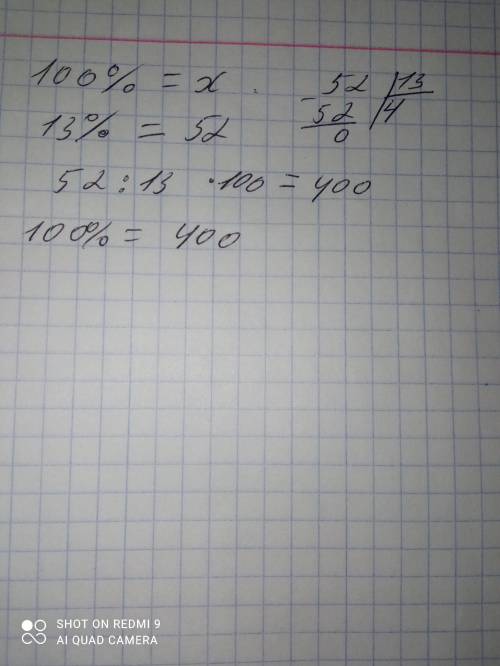 100% = x
13% = 52
52 : 13 · 100 = 400
100% = 400
52 | 13
- 52 | 4
0
SHOT ON REDMI 9
AI QUAD CAMERA